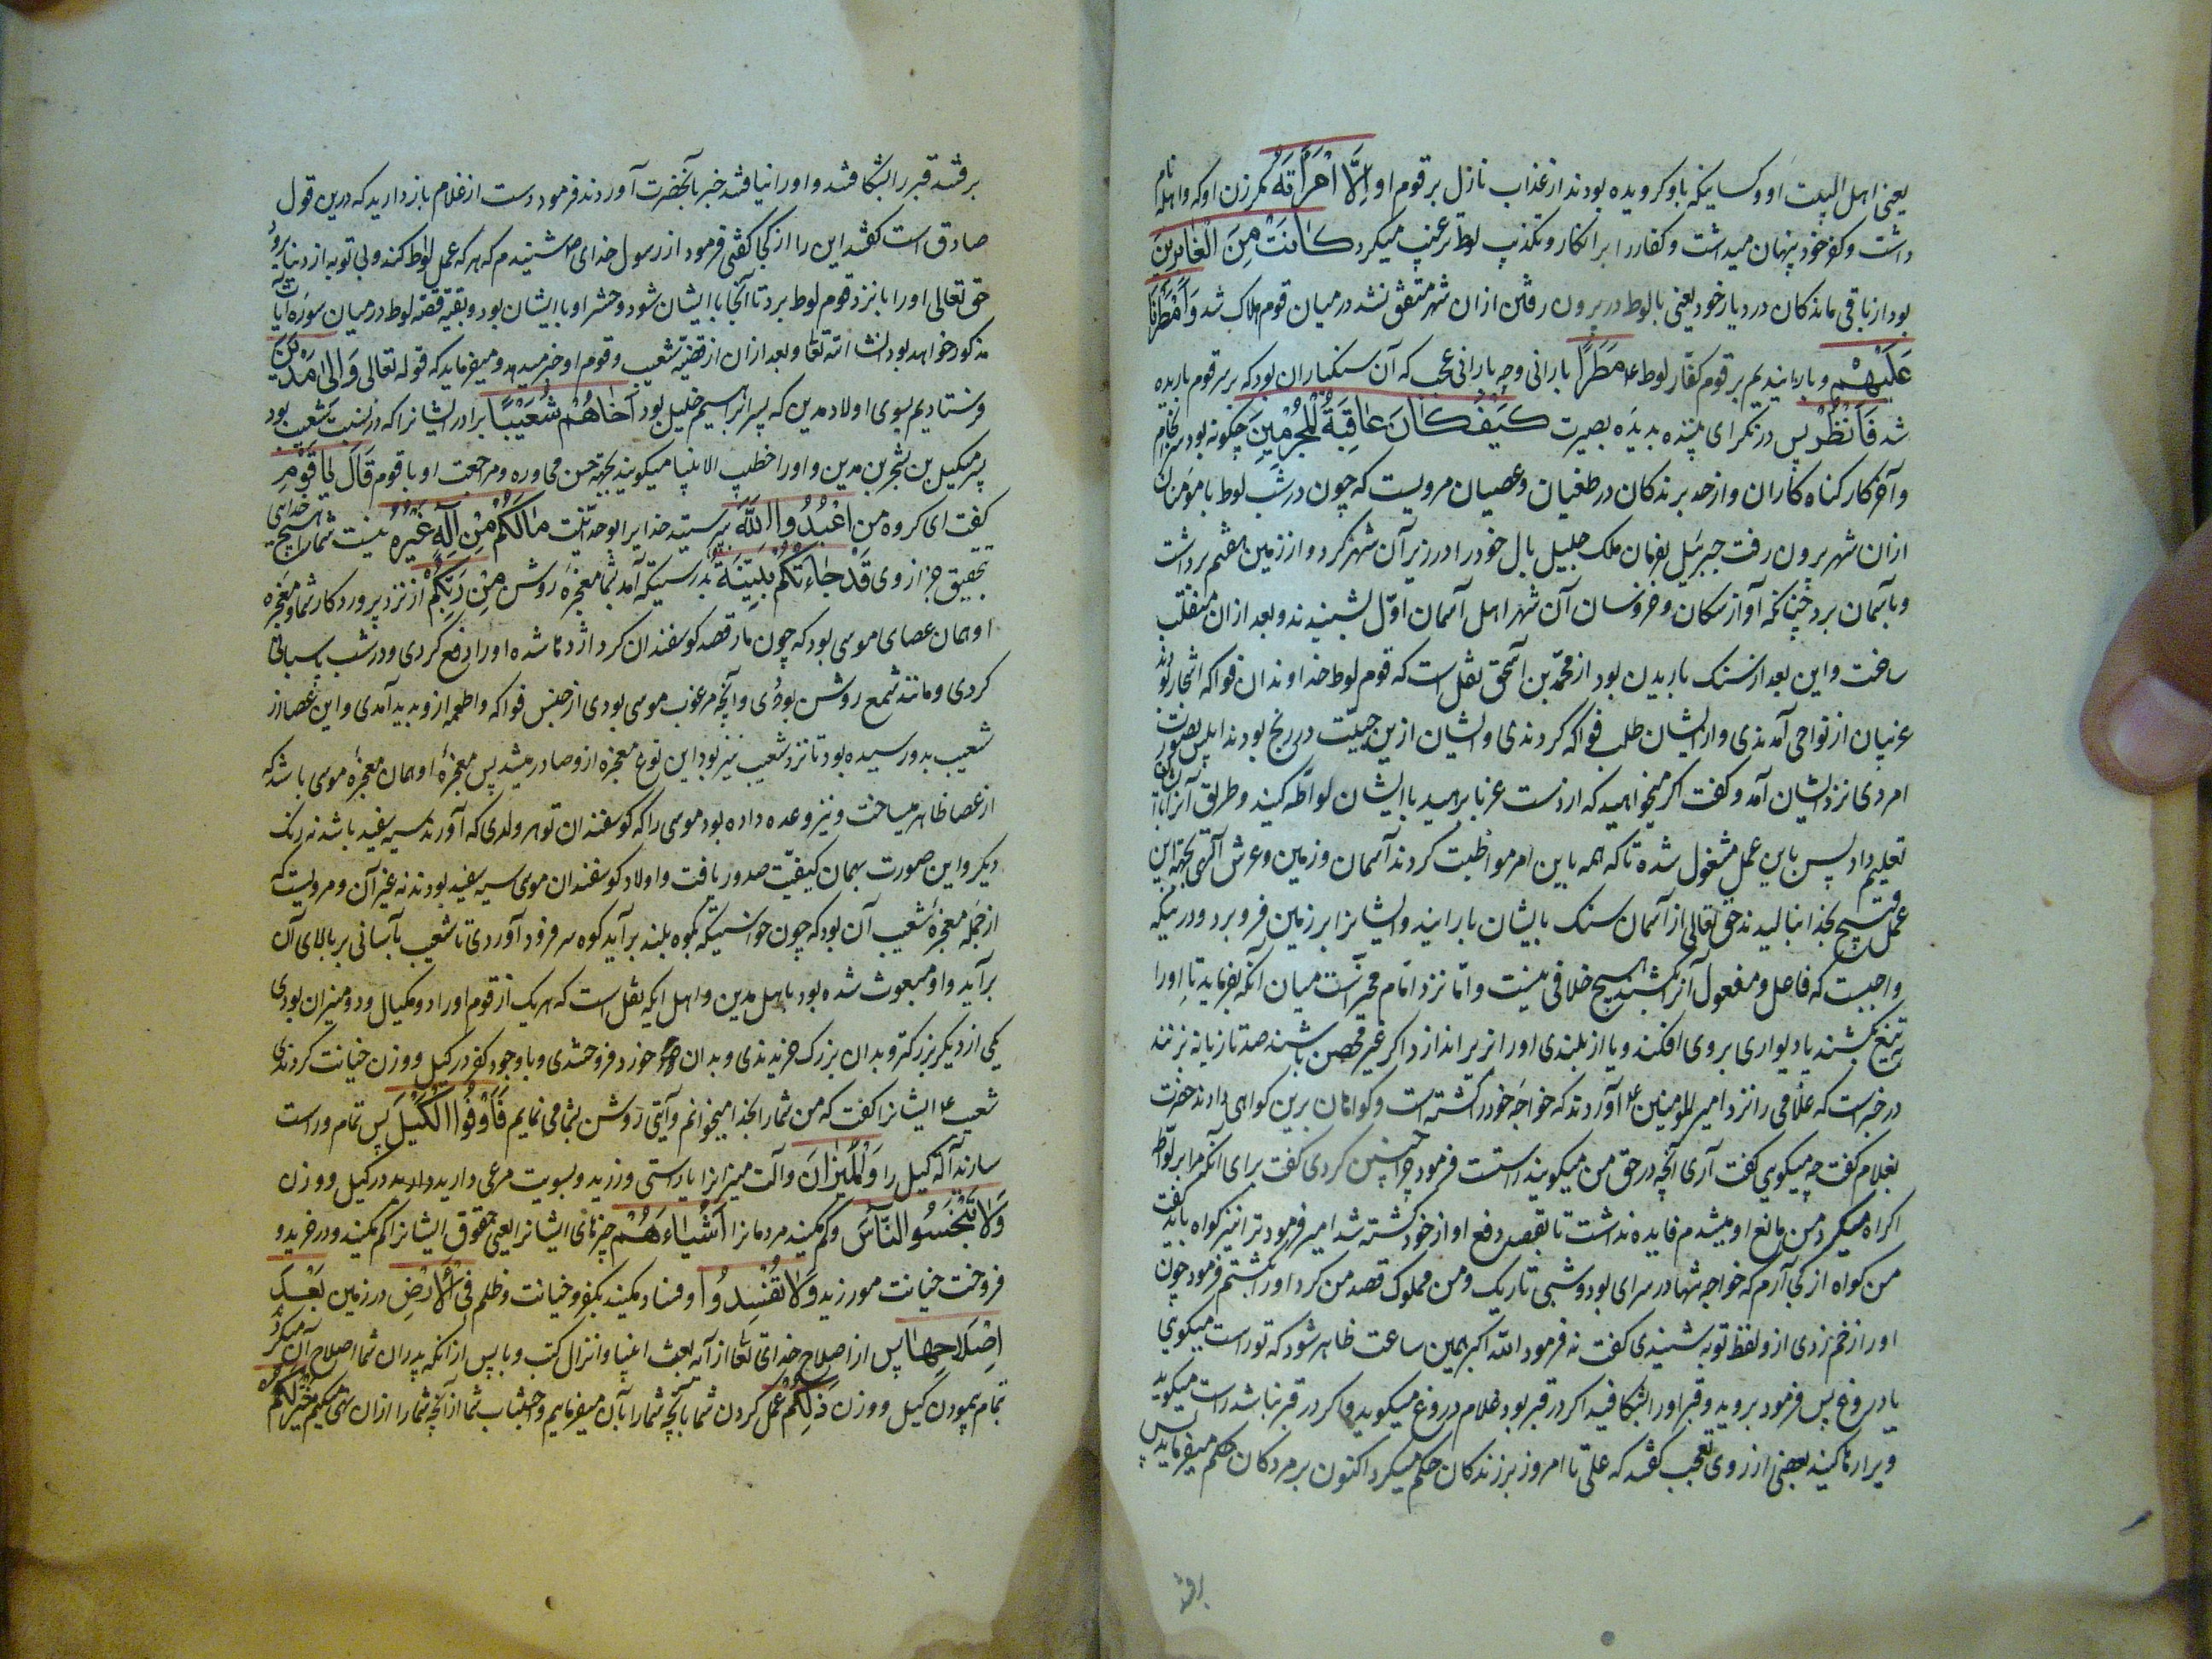 یعنی اهل البیت او و کسانیکه باو کرویده بودند از عذاب نازل بر قوم او اِلَّا امْرَأَتَهُ مکر زن او که واهله نام
داشت و کفر خود پنهان میداشت و کفار را بر انکار و تکذیب لوط ترغیب میکرد کَانَتْ مِنَ الْغَابِرِینَ
بود از باقی ماندکان در دیار خود یعنی با لوط در برون رفتن ازان شهر متفق نشد در میان قوم هلاک شد وَاَمْطَرْنَا
عَلَیْهِمْ و بارانیدیم بر قوم کفّار لوط ع مَطَرًا بارانی و چه بارانی عجب که آن سنکباران بود که بر سر قوم باریده
شد فَانْظُرْ پس در نکر ای بیننده بدیدَه بصیرت کَیْفَ کَانَ عَاقِبَةُ الْمُجْرِمِینَ چکونه بود سرانجام
و آخر کار کناه کاران و از حد برندکان در طغیان و عصیان مرویست که چون در شب لوط با مؤمنان
ازان شهر برون رفت جبرئیل بفرمان ملک جلیل بال خود را در زیر آن شهر کرد و از زمین هفتم برداشت
و بآسمان برد چنانکه آواز سکان و خروسان آن شهر اهل آسمان اوّل بشنیدند و بعد ازان منقلب
ساخت و این بعد از سنک باریدن بود از محمّد بن اسحق نقل است که قوم لوط خداوندان فواکه اشجار بودند
غریبان از نواحی آمدندی و از ایشان طلب فواکه کردندی و ایشان ازین جهت در رنج بودند ابلیس بصورت
امردی نزد ایشان آمد و کفت اکر میخواهید که از دست غربا برهید با ایشان لواطه کنید و طریق آنرا بایشان
تعلیم داد پس باین عمل مشغول شده تا که همه باین امر مواظبت کردند آسمان و زمین و عرش الهی بجهة این
عمل قبیح بخدا بنالیدند حق تعالی از آسمان سنک بایشان بارانید و ایشانرا بر زمین فرو برد و در نیکه
واجبست که فاعل و مفعول آنرا بکشند هیچ خلافی نیست و امّا نزد امام مخیّر است میان آنکه بفرماید تا او را
به تیغ بکشند یا دیواری بروی افکند و یا از بلندی او را بزیر اندازد اکر غیر محصن باشند صد تازیانه بزنند
در خبر است که غلامی را نزد امیر المؤمنین ع آوردند که خواجَه خود را کشته است و کواهان برین کواهی دادند حضرت
بغلام کفت چه میکویی کفت آری آنچه در حق من میکویند راستست فرمود چرا چنین کردی کفت برای آنکه مرا بر لواط
اکراه میکرد من مانع او میشدم فایده نداشت تا بقصد دفع او از خود کشته شد امیر فرمود ترا نیز کواه باید کفت
من کواه از کجا آرم که خواجه تنها در سرای بود و شبی تاریک و من مملوک قصد من کرد او را بکشتم فرمود چون
او را زخم زدی ازو لفظ توبه شنیدی کفت نه فرمود الله اکبر همین ساعت ظاهر شود که تو راست میکویی
یا دروغ پس فرمود بروید و قبر او را بشکافید اکر در قبر بود غلام دروغ میکوید و اکر در قبر نباشد راست میکوید
ویرا رها کنید بعضی از روی تعجب کفتند که علی تا امروز بر زندکان حکم میکرد اکنون بر مردکان حکم میفرماید پس
برفتند
برفتند قبر را بشکافتند و او را نیافتند خبر بآنحضرت آوردند فرمود دست از غلام بازدارید که درین قول
صادق است کفتند این را از کجا کفتی فرمود از رسول خدای ص شنیدم که هر که عمل لوط کند و بی توبه از دنیا برود
حق تعالی او را با نزد قوم لوط برد تا آنجا با ایشان شود و حشر او با ایشان بود و بقیّه قصّه لوط در میان سورَه
مذکور خواهد بود انشا الله تعا و بعد ازان از قضیّه شعیب و قوم او خبر میدهد و میفرماید که قوله تعالی وَاِلٰی مَدْیَنَ
فرستادیم بسوی اولاد مدین که پسر ابراهیم خلیل بود اَخَاهُمْ شُعَیْبًا برادر ایشانرا که در نسبت شعیب بود
پسر میکیل بن یشجر بن مدین و او را خطیب الانبیا میکویند بجهة حسن محاوره و مراجعت او با قوم قَالَ یَا قَوْمِ
کفت ای کروه من اعْبُدُوا اللهَ پرستید خدایرا بوحدانیّت مَالَکُمْ مِنْ اِلٰهٍ غَیْرُهُ نیست شما را هیچ خدایی
بتحقیق جز از وی قَدْ جَاءَتْکُمْ بَیِّنَةٌ بدرستیکه آمد بشما معجزَه روشن مِنْ رَبِّکُمْ از نزد پروردکار شما و معجزه
او همان عصای موسی بود که چون مار قصد کوسفندان کرد اژدها شده او را دفع کردی و در شب پاسبانی
کردی و مانند شمع روشن بودی و آنچه مرغوب موسی بودی از جنس فواکه و اطعمه ازو پدید آمدی و این عصا از
شعیب بدو رسیده بود تا نزد شعیب نیز بود این نوع معجزه ازو صادر میشد پس معجزهٔ او همان معجزهٔ موسی باشد که
از عصا ظاهر میساخت و نیز وعده داده بود موسی را که کوسفندان تو هر ولدی که آورند سیه سفید باشد نه رنک
دیکر و این صورت بهمان کیفیّت صدور یافت و اولاد کوسفندان موسی سیه سفید بودند نه غیر آن و مرویست که
از جمله معجزهٔ شعیب آن بود که چون خواستیکه بکوه بلند برآید کوه سر فرود آوردی تا شعیب بآسانی بر بالای آن
برآید و او مبعوث شده بود باهل مدین و اهل ایکه نقل است که هر یک از قوم او را دو مکیال و دو میزان بودی
یکی از دیکر بزرکتر و بدان بزرک خریدندی و بدان خورد فروختندی و با وجود کفر در کیل و وزن خیانت کردندی
شعیب ع ایشانرا کفت که من شما را بخدا میخوانم و آیتی روشن بشما می نمایم فَاَوْفُوا الْکَیْلَ پس تمام و راست
سازند آلة کیل را وَالْمِیزَانَ و آلت میزانرا براستی ورزید و بسویت مرعی دارید در کیل و وزن
وَلَا تَبْخَسُوا النَّاسَ و کم مکنید مردمانرا اَشْیَاءَهُمْ چیزهای ایشانرا یعنی حقوق ایشانرا کم نکنید و در خرید و
فروخت خیانت مورزید وَلَا تُفْسِدُوا و فساد مکنید بکفر و خیانت و ظلم فِی الْاَرْضِ در زمین بَعْدَ
اِصْلَاحِهَا پس از اصلاح خدای تعا از آنه بعث انبیا و انزال کتب و یا پس از آنکه پدران شما اصلاح آن میکردند
تمام پیمودن کیل و وزن ذٰلِکُمْ عمل کردن شما بآنچه شما را بآن میفرماییم و اجتناب شما از آنچه شما را ازان نهی میکنیم خَیْرٌ لَکُمْ